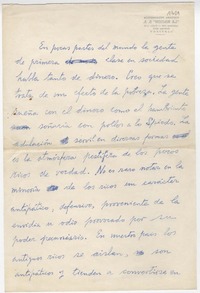 En pocas partes del mundo la gente
de primera clase en sociedad
habla tanto de dinero. Creo que se
trata de un efecto de la pobreza. La gente
sueña con el dinero como el hambriento
con pollos a la
servil en diversas formas
es la atmósfera pestífera de los pocos
ricos de verdad. No es raro notar en la
de los ricos un carácter
antipático, defensivo, proveniente de la
envidia u odio provocado por su
poder pecuniario. En nuestro país los
antiguos ricos se aíslan, son
antipáticos y tienden a convertirse en